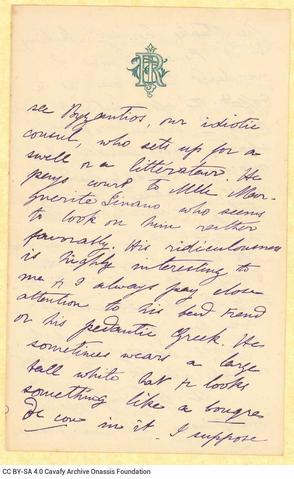 see Byzantios, our idiotic
consul, who sets up for a
swell or a littérateur. He
pays court to Mlle Mar-
guerite Sinano who seems
to look on him rather
favorably. His ridiculousness
is highly interesting to
me & I always pay close
attention to his
or his pedantic Greek. He
sometimes wears a large
tall white hat & looks
something like a bougre
de con in it. I suppose
CC BY-SA 4.0 Cavafy Archive Onassis Foundation